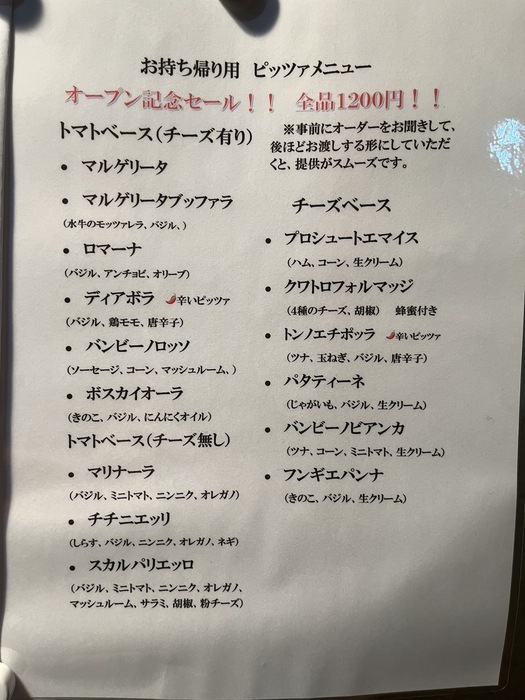 お持ち帰り用 ピッツァメニュー
オープン記念セール！！ 全品1200円！！
トマトベース(チーズ有り)
・ マルゲリータ
・ マルゲリータブッファラ
(水牛のモッツァレラ、バジル、)
・ ロマーナ
(バジル、アンチョビ、オリーブ)
・ ディアボラ 🌶辛いピッツァ
(バジル、鶏モモ、唐辛子)
・ バンビーノロッソ
(ソーセージ、コーン、マッシュルーム、)
・ ボスカイオーラ
(きのこ、バジル、にんにくオイル)
トマトベース(チーズ無し)
・ マリナーラ
(バジル、ミニトマト、ニンニク、オレガノ)
・ チチニエッリ
(しらす、バジル、ニンニク、オレガノ、ネギ)
・ スカルパリエッロ
(バジル、ミニトマト、ニンニク、オレガノ、
マッシュルーム、サラミ、胡椒、粉チーズ)
※事前にオーダーをお聞きして、
後ほどお渡しする形にしていただ
くと、提供がスムーズです。
チーズベース
・ プロシュートエマイス
(ハム、コーン、生クリーム)
・ クワトロフォルマッジ
(4種のチーズ、胡椒) 蜂蜜付き
・ トンノエチポッラ 🌶辛いピッツァ
(ツナ、玉ねぎ、バジル、唐辛子)
・ パタティーネ
(じゃがいも、バジル、生クリーム)
・ バンビーノビアンカ
(ツナ、コーン、ミニトマト、生クリーム)
・ フンギエパンナ
(きのこ、バジル、生クリーム)